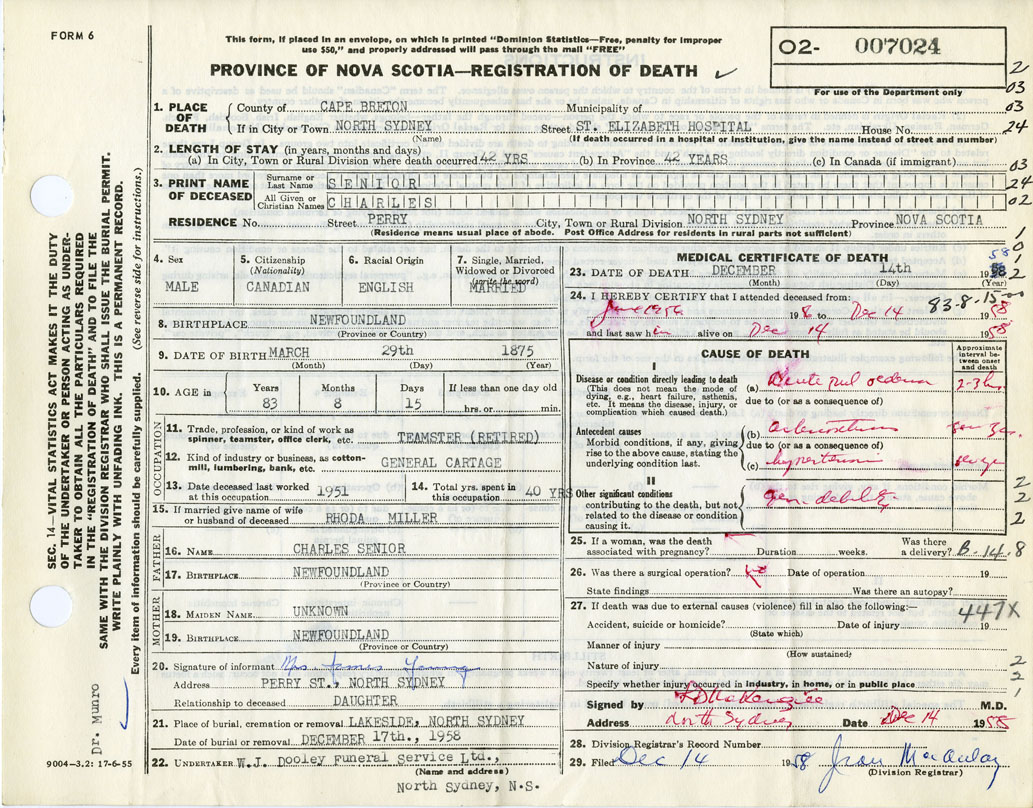 FORM 6
This form, if placed in an envelope, on which is printed "Dominion Statistics—Free, penalty for improper
use $50," and properly addressed will pass through the mail "FREE"
PROVINCE OF NOVA SCOTIA—REGISTRATION OF DEATH ✓
02- 007024
For use of the Department only
2
03
03
24
03
24
02
1. PLACE OF DEATH County of CAPE BRETON Municipality of
If in City or Town NORTH SYDNEY Street ST. ELIZABETH HOSPITAL House No.
(Name) (If death occurred in a hospital or institution, give the name instead of street and number)
2. LENGTH OF STAY (in years, months and days)
(a) In City, Town or Rural Division where death occurred 42 YRS (b) In Province 42 YEARS (c) In Canada (if immigrant)
3. PRINT NAME OF DECEASED Surname or Last Name SENIOR
All Given or Christian Names CHARLES
RESIDENCE No. Street PERRY City, Town or Rural Division NORTH SYDNEY Province NOVA SCOTIA
(Residence means usual place of abode. Post Office Address for residents in rural parts not sufficient)
4. Sex
MALE
5. Citizenship
(Nationality)
CANADIAN
6. Racial Origin
ENGLISH
7. Single, Married,
Widowed or Divorced
(write the word)
MARRIED
8. BIRTHPLACE NEWFOUNDLAND
(Province or Country)
9. DATE OF BIRTH MARCH 29th 1875
(Month) (Day) (Year)
10. AGE in
Years Months Days If less than one day old
83 8 15 hrs. or min.
OCCUPATION
11. Trade, profession, or kind of work as
spinner, teamster, office clerk, etc. TEAMSTER (RETIRED)
12. Kind of industry or business, as cotton-
mill, lumbering, bank, etc. GENERAL CARTAGE
13. Date deceased last worked
at this occupation 1951
14. Total yrs. spent in
this occupation 40 YRS
15. If married give name of wife
or husband of deceased RHODA MILLER
FATHER
16. NAME CHARLES SENIOR
17. BIRTHPLACE NEWFOUNDLAND
(Province or Country)
MOTHER
18. MAIDEN NAME UNKNOWN
19. BIRTHPLACE NEWFOUNDLAND
(Province or Country)
20. Signature of informant Mrs. James Young
Address PERRY ST., NORTH SYDNEY
Relationship to deceased DAUGHTER
21. Place of burial, cremation or removal LAKESIDE, NORTH SYDNEY
Date of burial or removal DECEMBER 17th., 1958
22. UNDERTAKER W.J. Dooley Funeral Service Ltd.,
(Name and address)
North Sydney, N.S.
MEDICAL CERTIFICATE OF DEATH
23. DATE OF DEATH DECEMBER 14th 1958
(Month) (Day) (Year)
24. I HEREBY CERTIFY that I attended deceased from: 83-8-15
June 1956 to Dec 14 1958
and last saw him alive on Dec 14 1958
CAUSE OF DEATH
Approximate
interval be-
tween onset
and death
I
Disease or condition directly leading to death
(This does not mean the mode of
dying, e.g., heart failure, asthenia,
etc. It means the disease, injury, or
complication which caused death.)
(a) Acute pul oedema 2-3 hrs
due to (or as a consequence of)
Antecedent causes
Morbid conditions, if any, giving
rise to the above cause, stating the
underlying condition last.
(b)
due to (or as a consequence of)
(c) hypertension
II
Other significant conditions
contributing to the death, but not
related to the disease or condition
causing it.
gen. debility
2
2
2
25. If a woman, was the death
associated with pregnancy? Duration weeks. Was there
a delivery? B-14.8
26. Was there a surgical operation? no Date of operation 19
State findings Was there an autopsy?
27. If death was due to external causes (violence) fill in also the following:—
447X
Accident, suicide or homicide? Date of injury 19
(State which)
Manner of injury
(How sustained)
Nature of injury
Specify whether injury occurred in industry, in home, or in public place
2
2
1
Signed by McKenzie M.D.
Address North Sydney Date Dec 14 1958
28. Division Registrar's Record Number
29. Filed Dec 14 1958 Jean MacAulay
(Division Registrar)
SEC. 14—VITAL STATISTICS ACT MAKES IT THE DUTY
OF THE UNDERTAKER OR PERSON ACTING AS UNDER-
TAKER TO OBTAIN ALL THE PARTICULARS REQUIRED
IN THE "REGISTRATION OF DEATH" AND TO FILE THE
SAME WITH THE DIVISION REGISTRAR WHO SHALL ISSUE THE BURIAL PERMIT.
WRITE PLAINLY WITH UNFADING INK. THIS IS A PERMANENT RECORD.
Every item of information should be carefully supplied. (See reverse side for instructions.)
Dr. Munro ✓
9004-3.2: 17-6-55